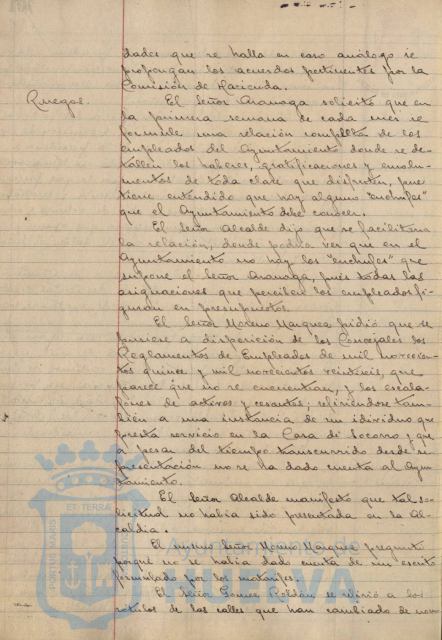 dades que se halla en caso análogo se
propongan los acuerdos pertinentes por la
Comisión de Hacienda.
Ruegos
El Señor Aranaga solicitó que en
la primera semana de cada mes se
formule una relación completa de los
empleados del Ayuntamiento donde se de-
tallen los haberes, gratificaciones y emolu-
mentos de toda clase que disfruten, pues
tiene entendido que hay algunos "enchufes"
que el Ayuntamiento debe conocer.
El Señor Alcalde dijo que se facilitaria
la relación, donde podria ver que en el
Ayuntamiento no hay los "enchufes" que
supone el Señor Aranaga, pues todas las
asignaciones que perciben los empleados fi-
guran en presupuestos.
El Señor Moreno Marquez pidió que se
pusiera a disposición de los Concejales los
Reglamentos de Empleados de mil novecien-
tos quince y mil novecientos veintiseis, que
parece que no se encuentran, y los escala-
fones de activos y cesantes; refiriendose tam-
bién a una instancia de un individuo que
presta servicio en la Casa de Socorro y que
a pesar del tiempo transcurrido desde su
presentación no se ha dado cuenta al Ayun-
tamiento.
El Señor Alcalde manifestó que tal so-
licitud no habia sido presentada en la Al-
caldia.
El mismo Señor Moreno Marquez preguntó
porqué no se habia dado cuenta de un escrito
formulado por los matarifes.
El Señor Gomez Roldán se refirió a los
rótulos de las calles que han cambiado de nom
PORTUS MARIS ET TERRAE
Ayuntamiento de
HUELVA